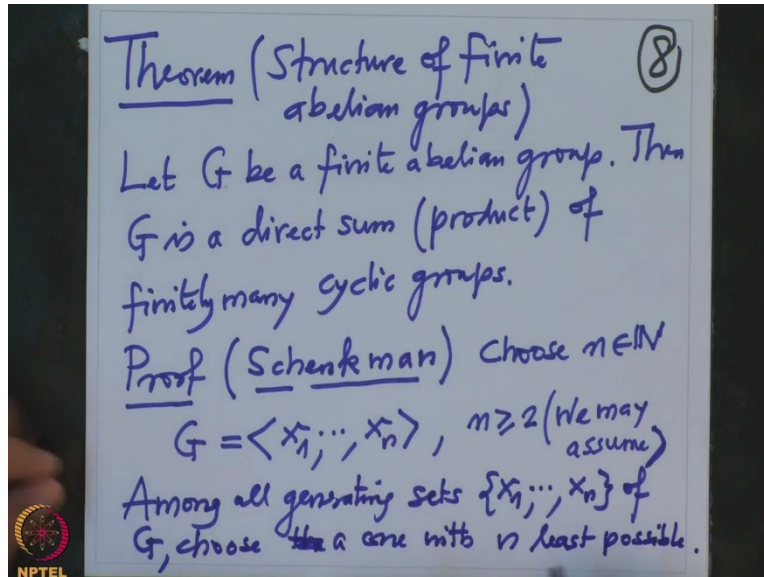 Theorem (Structure of finite
abelian groups)
8
Let G be a finite abelian group. Then
G is a direct sum (product) of
finitely many cyclic groups.
Proof (Schenkman) Choose n∈ℕ
G = <x₁,..,xₙ>, n≥2 (We may
assume)
Among all generating sets {x₁,..,xₙ} of
G, choose a one with n least possible.
NPTEL